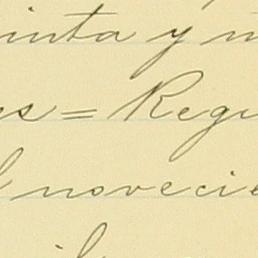 inta y n
es = Regu
l novecie